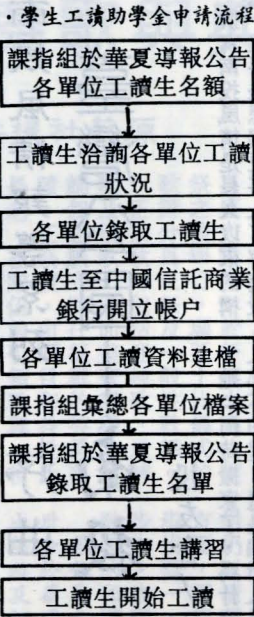 ·學生工讀助學金申請流程
課指組於華夏導報公告
各單位工讀生名額
工讀生洽詢各單位工讀
狀況
各單位錄取工讀生
工讀生至中國信託商業
銀行開立帳户
各單位工讀資料建檔
課指組彙總各單位檔案
課指組於華夏導報公告
錄取工讀生名單
各單位工讀生講習
工讀生開始工讀